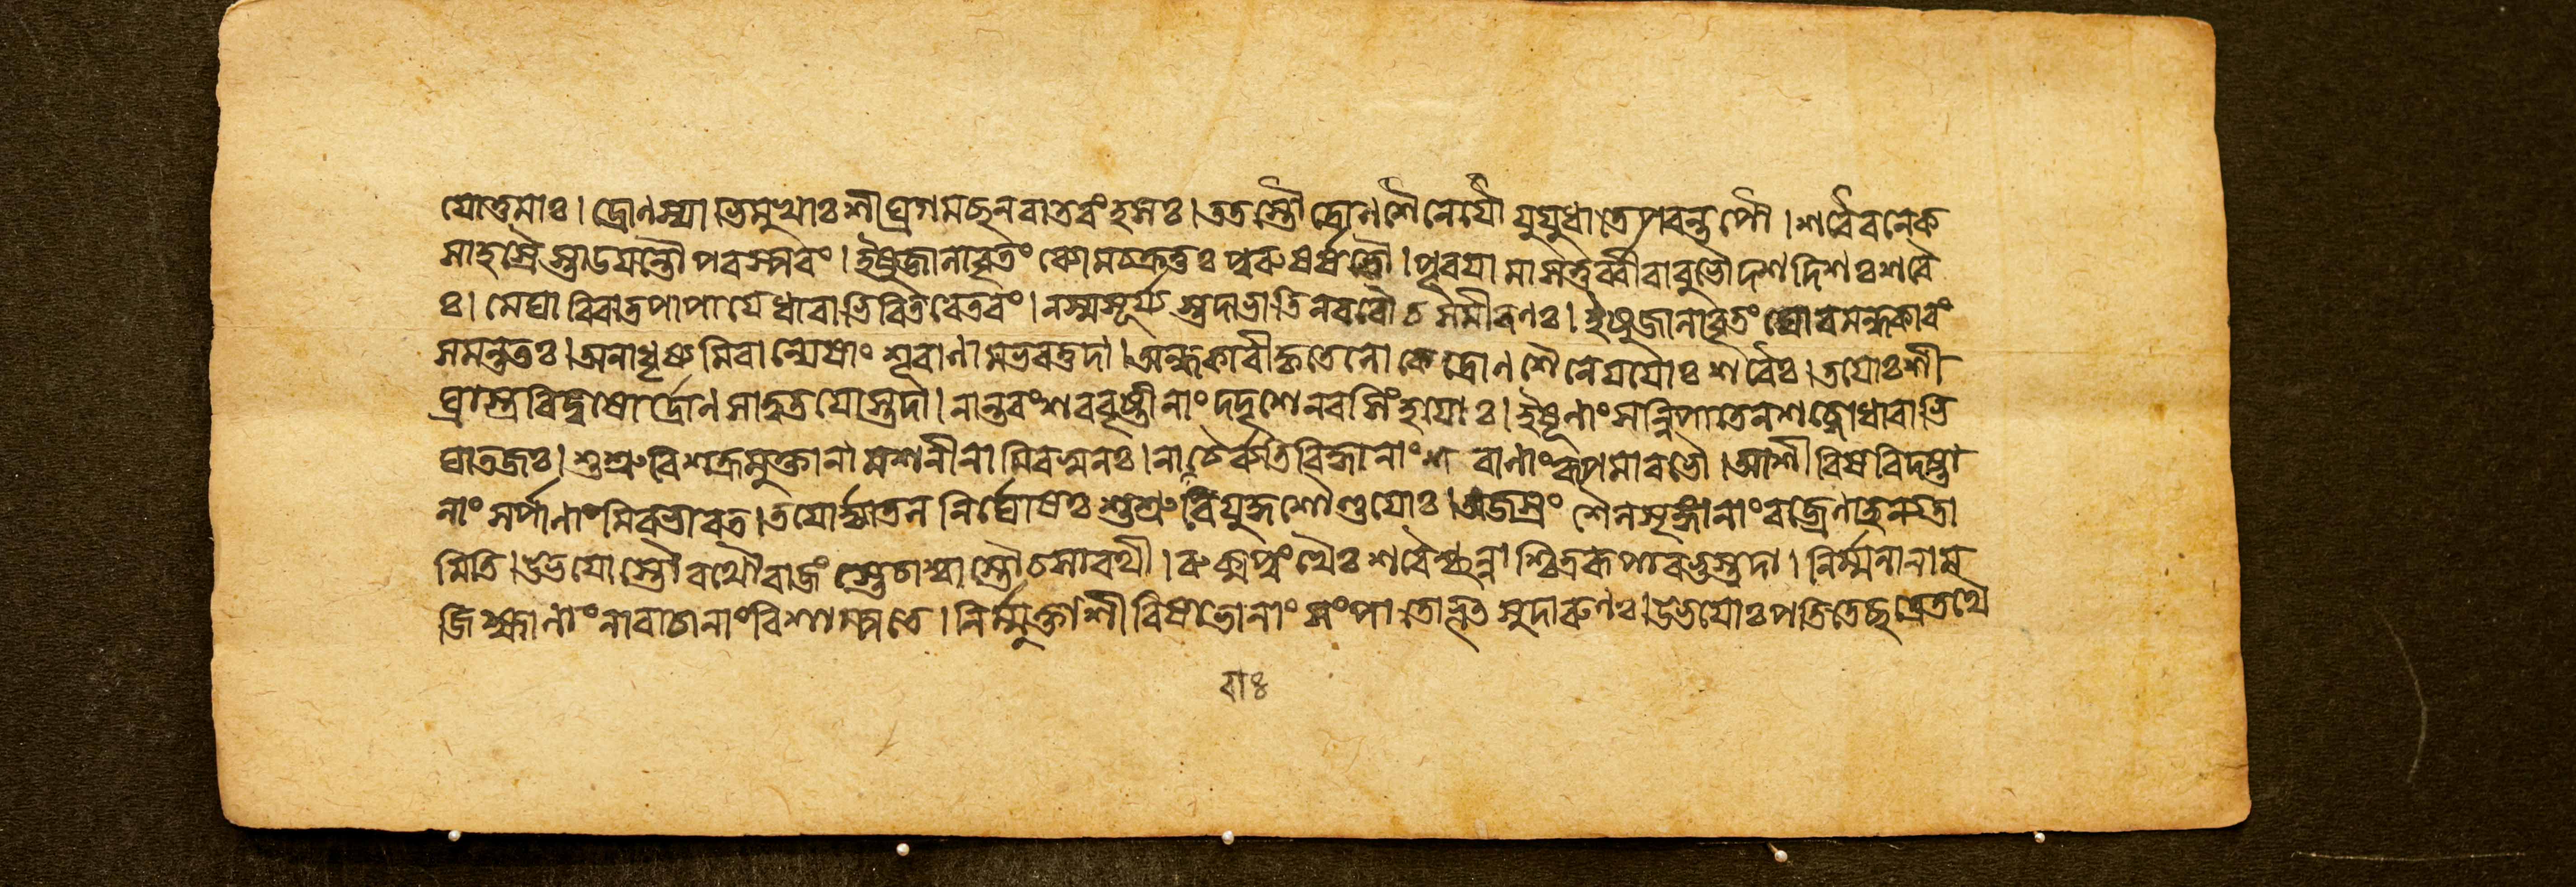 যোত্তমাঃ। দ্রোনস্যাভিমুখাঃ শীঘ্রগমছন বাতরংহসঃ। ততস্তৌ দ্রোনশৈনেযৌ যুযুধাতে পরন্তপৌ। শরৈরনেক
সাহস্রৈস্তাডযন্তৌ পরস্পরং। ইষুজালাবৃতং ব্যোম চক্রতুঃ পুরুষর্ষভৌ। পূরযামাসতুর্ব্বীরাবুভৌ দশ দিশঃ শরৈ
ঃ। মেঘাবিবাতপাপাযে ধারাভিরিতরেতরং। নস্ম সূর্য্যস্তদাভাতি নববৌ চ সমীরণঃ। ইষুজালাবৃতং ঘোরমন্ধকারং
সমন্ততঃ। অনাধৃষ্যমিবান্যেষাং শূরাণামভবত্তদা। অন্ধকারীকৃতে লোকে দ্রোনশৈনেযযোঃ শরৈঃ। তযোঃ শী
ঘ্রাস্ত্রবিদুষোর্দ্রোনসাত্বতযোস্তদা। নান্তরং শরবৃষ্টীনাং দদৃশে নরসিংহযোঃ। ইষূনাং সন্নিপাতেন শব্দো ধারাভি
ঘাতজঃ। শুশ্রুবে শক্রমুক্তানামশনীনামিব স্বনঃ। নারাচৈরতিবিদ্ধানাং শরাণাং রূপমাবভৌ। আশীবিষবিদষ্টা
নাং সর্পাণাংমিব ভারত। তযোর্জ্যাতলনির্ঘোষঃ শুশ্রুবে যুদ্ধশৌণ্ডযোঃ। অজস্রং শৈলশৃঙ্গানাং বজ্রেণাহন্যতা
মিতি। উভযোস্তৌ রথৌ রাজংস্তে চাশ্বাস্তৌ চ সারথী। রুক্মপুংখৈঃ শরৈশ্ছন্নাশ্চিত্ররূপা বভুস্তদা। নির্ম্মলানাম
জিহ্মানাং নারাচানাং বিশাম্পতে। নির্ম্মুক্তাশীবিষাভানাং সংপাতোভূত সুদারুণঃ। উভযোঃ পতিতে ছত্রে তথৈ